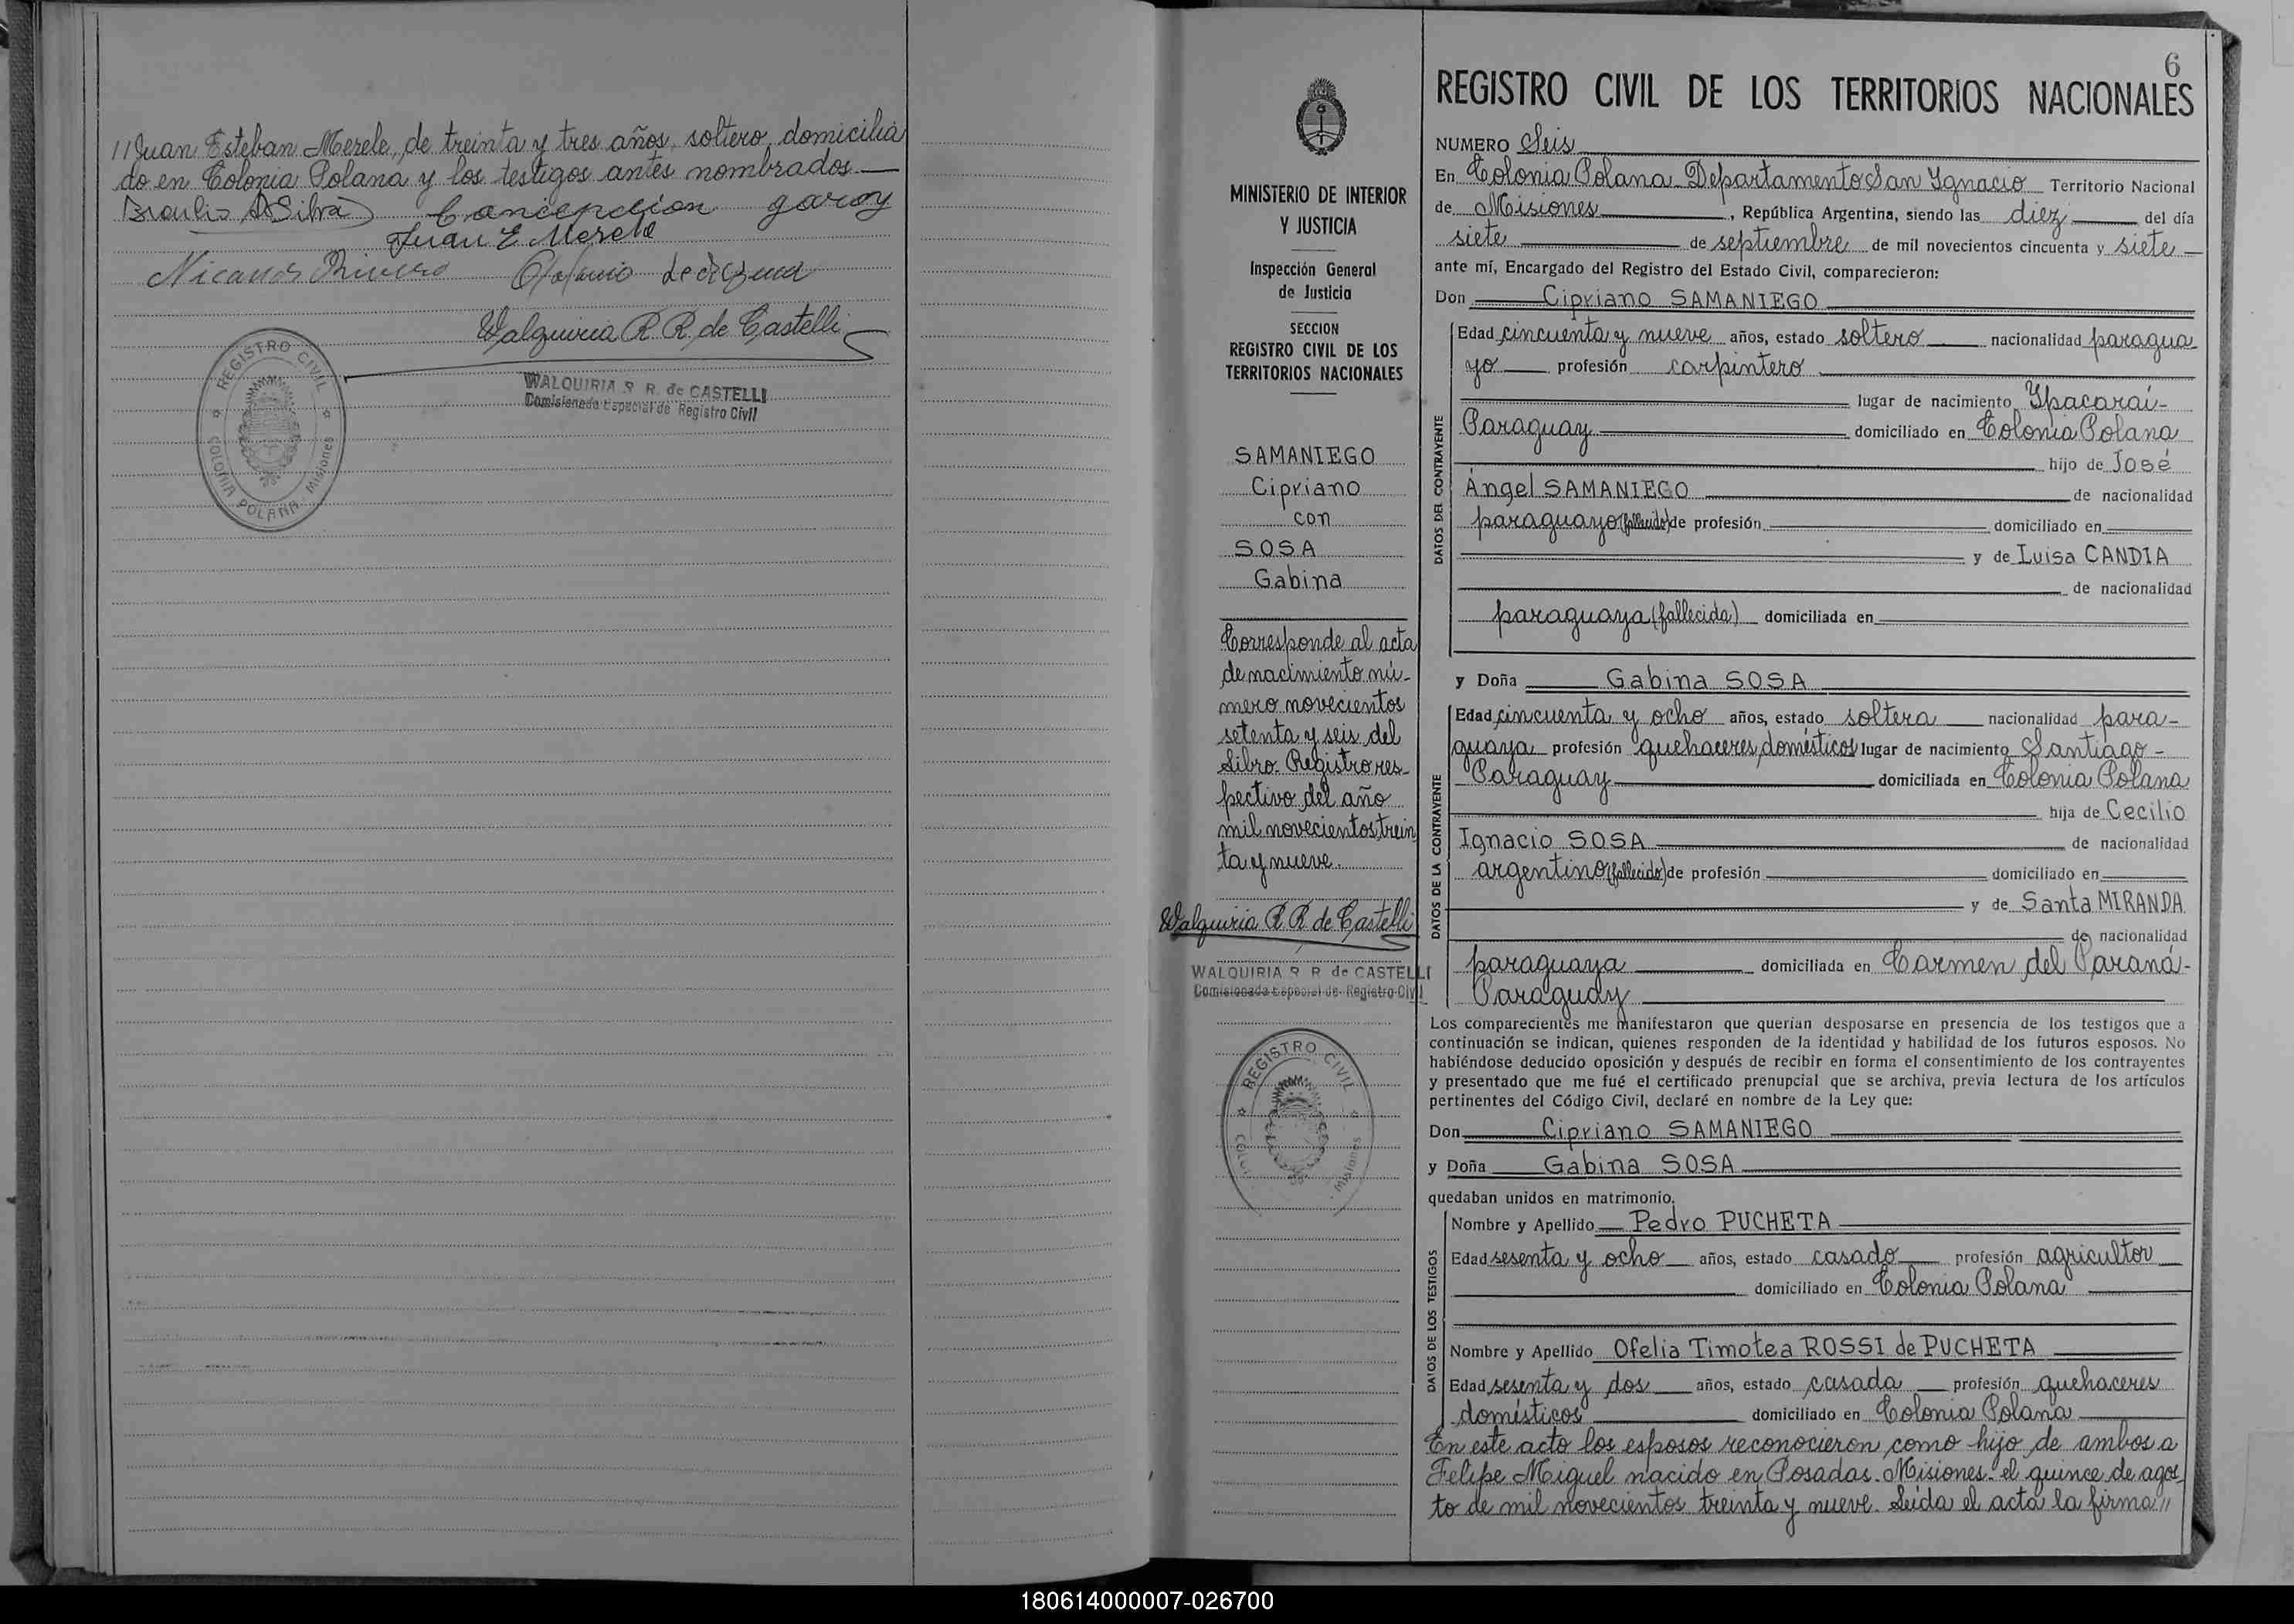 //Juan Esteban Merele, de treinta y tres años, soltero, domicilia
do en Colonia Polana y los testigos antes nombrados.
Braulio A Silva Concepcion garay
Juan E Merele
Nicanor Rivero
Walquiria R R. de Castelli
WALQUIRIA R R. de CASTELLI
Comisionada Especial de Registro Civil
REGISTRO CIVIL
COLONIA POLANA - Misiones
MINISTERIO DE INTERIOR
Y JUSTICIA
Inspección General
de Justicia
SECCION
REGISTRO CIVIL DE LOS
TERRITORIOS NACIONALES
SAMANIEGO
Cipriano
con
SOSA
Gabina
Corresponde al acta
de nacimiento nú-
mero novecientos
setenta y seis del
Libro Registro res-
pectivo del año
mil novecientos trein
ta y nueve.
Walquiria R R de Castelli
WALQUIRIA R R de CASTELLI
Comisionada Especial de Registro Civil
REGISTRO CIVIL
Misiones
6
REGISTRO CIVIL DE LOS TERRITORIOS NACIONALES
NUMERO Seis
En Colonia Polana Departamento San Ignacio Territorio Nacional
de Misiones, República Argentina, siendo las diez del día
siete de septiembre de mil novecientos cincuenta y siete
ante mí, Encargado del Registro del Estado Civil, comparecieron:
Don Cipriano SAMANIEGO
DATOS DEL CONTRAYENTE
Edad cincuenta y nueve años, estado soltero nacionalidad paragua
yo profesión carpintero
lugar de nacimiento Ypacaraí-
Paraguay domiciliado en Colonia Polana
hijo de José
Ángel SAMANIEGO de nacionalidad
paraguayo (fallecido) de profesión domiciliado en
y de Luisa CANDIA
de nacionalidad
paraguaya (fallecida) domiciliada en
y Doña Gabina SOSA
DATOS DE LA CONTRAYENTE
Edad cincuenta y ocho años, estado soltera nacionalidad para-
guaya profesión quehaceres domésticos lugar de nacimiento Santiago -
Paraguay domiciliada en Colonia Polana
hija de Cecilio
Ignacio SOSA de nacionalidad
argentino (fallecido) de profesión domiciliado en
y de Santa MIRANDA
de nacionalidad
paraguaya domiciliada en Carmen del Paraná-
Paraguay
Los comparecientes me manifestaron que querían desposarse en presencia de los testigos que a
continuación se indican, quienes responden de la identidad y habilidad de los futuros esposos. No
habiéndose deducido oposición y después de recibir en forma el consentimiento de los contrayentes
y presentado que me fué el certificado prenupcial que se archiva, previa lectura de los artículos
pertinentes del Código Civil, declaré en nombre de la Ley que:
Don Cipriano SAMANIEGO
y Doña Gabina SOSA
quedaban unidos en matrimonio.
DATOS DE LOS TESTIGOS
Nombre y Apellido Pedro PUCHETA
Edad sesenta y ocho años, estado casado profesión agricultor
domiciliado en Colonia Polana
Nombre y Apellido Ofelia Timotea ROSSI de PUCHETA
Edad sesenta y dos años, estado casada profesión quehaceres
domésticos domiciliado en Colonia Polana
En este acto los esposos reconocieron como hijo de ambos a
Felipe Miguel nacido en Posadas. Misiones - el quince de agos
to de mil novecientos treinta y nueve. Leída el acta la firma//
180614000007-026700